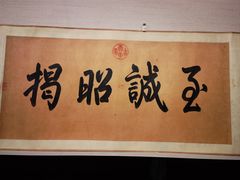 至誠昭揭